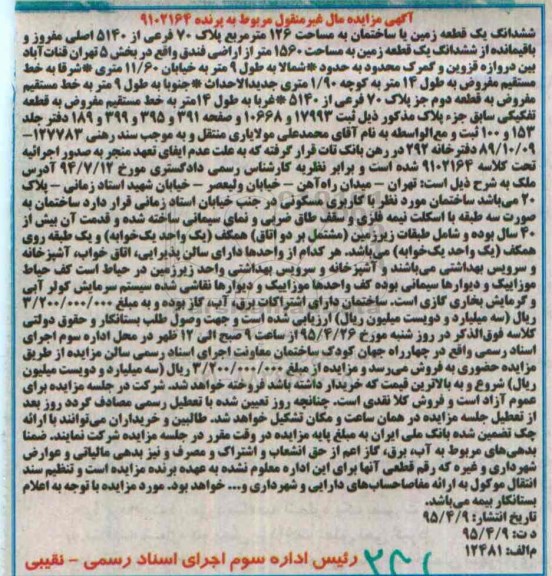 آگهی مزایده مال غیرمنقول مربوط به پرنده ۹۱۰۲۱۶۴
ششدانگ یک قطعه زمین با ساختمان به مساحت ۱۲۶ مترمربع پلاک ۷۰ فرعی از ۵۱۴۰ اصلی مفروز و
باقیمانده از ششدانگ یک قطعه زمین به مساحت ۱۵۶۰ متر از اراضی فندق واقع در بخش ۵ تهران قنات‌آباد
بین دروازه قزوین و گمرک محدود به حدود *شمالا به طول ۹ متر به خیابان ۱۱/۶۰ متری *شرقا به خط
مستقیم مفروض به طول ۱۴ متر به کوچه ۱/۹۰ متری جدیدالاحداث *جنوبا به طول ۹ متر به خط مستقیم
مفروض به قطعه دوم جز پلاک ۷۰ فرعی از ۵۱۴۰ *غربا به طول ۱۴متر به خط مستقیم مفروض به قطعه
تفکیکی سابق جزء پلاک مذکور ذیل ثبت ۱۷۹۹۳ و ۱۰۶۶۸ و صفحه ۳۹۱ و ۳۹۵ و ۳۹۹ و ۱۸۹ دفتر جلد
۱۵۳ و ۱۰۰ ثبت و مع‌الواسطه به نام آقای محمدعلی مولایاری منتقل و به موجب سند رهنی ۱۲۷۷۸۳-
۸۹/۱۰/۰۹ دفترخانه ۲۹۲ در رهن بانک تات قرار گرفته که به علت عدم ایفای تعهد منجر به صدور اجرائیه
تحت کلاسه ۹۱۰۲۱۶۴ شده است و برابر نظریه کارشناس رسمی دادگستری مورخ ۹۴/۷/۱۲ آدرس
ملک به شرح ذیل است: تهران - میدان راه‌آهن - خیابان ولیعصر - خیابان شهید استاد زمانی - پلاک
۲۰ می‌باشد ساختمان مورد نظر با کاربری مسکونی در جنب خیابان استاد زمانی قرار دارد ساختمان به
صورت سه طبقه با اسکلت نیمه فلزی و سقف طاق ضربی و نمای سیمانی ساخته شده و قدمت آن بیش از
۴۰ سال بوده و شامل طبقات زیرزمین (مشتمل بر دو اتاق) همکف (یک واحد یک‌خوابه) و یک طبقه روی
همکف (یک واحد یک‌خوابه) می‌باشد. هر کدام از واحدها دارای سالن پذیرایی، اتاق خواب، آشپزخانه
و سرویس بهداشتی می‌باشند و آشپزخانه و سرویس بهداشتی واحد زیرزمین در حیاط است کف حیاط
موزاییک و دیوارها سیمانی بوده کف واحدها موزاییک و دیوارها نقاشی شده سیستم سرمایش کولر آبی
و گرمایش بخاری گازی است. ساختمان دارای اشتراکات برق، آب، گاز بوده و به مبلغ ۳/۲۰۰/۰۰۰/۰۰۰
ریال (سه میلیارد و دویست میلیون ریال) ارزیابی شده است و جهت وصول طلب بستانکار و حقوق دولتی
کلاسه فوق‌الذکر در روز شنبه مورخ ۹۵/۴/۲۶ از ساعت ۹ صبح الی ۱۲ ظهر در محل اداره سوم اجرای
اسناد رسمی واقع در چهارراه جهان کودک ساختمان معاونت اجرای اسناد رسمی سالن مزایده از طریق
مزایده حضوری به فروش می‌رسد و مزایده از مبلغ ۳/۲۰۰/۰۰۰/۰۰۰ ریال (سه میلیارد و دویست میلیون
ریال) شروع و به بالاترین قیمت که خریدار داشته باشد فروخته خواهد شد. شرکت در جلسه مزایده برای
عموم آزاد است و فروش کلا نقدی است. چنانچه روز تعیین شده با تعطیل رسمی مصادف گردد روز بعد
از تعطیل جلسه مزایده در همان ساعت و مکان تشکیل خواهد شد. طالبین و خریداران می‌توانند با ارائه
چک تضمین شده بانک ملی ایران به مبلغ پایه مزایده در وقت مقرر در جلسه مزایده شرکت نمایند. ضمنا
بدهی‌های مربوط به آب، برق، گاز اعم از حق انشعاب و اشتراک و مصرف و نیز بدهی مالیاتی و عوارض
شهرداری و غیره که رقم قطعی آنها برای این اداره معلوم نشده به عهده برنده مزایده است و تنظیم سند
انتقال موکول به ارائه مفاصاحساب‌های دارایی و شهرداری و... خواهد بود. مورد مزایده با توجه به اعلام
بستانکار بیمه می‌باشد.
تاریخ انتشار: ۹۵/۴/۹
د ت: ۹۵/۴/۹
م‌الف: ۱۲۴۸۱
رئیس اداره سوم اجرای اسناد رسمی - نقیبی